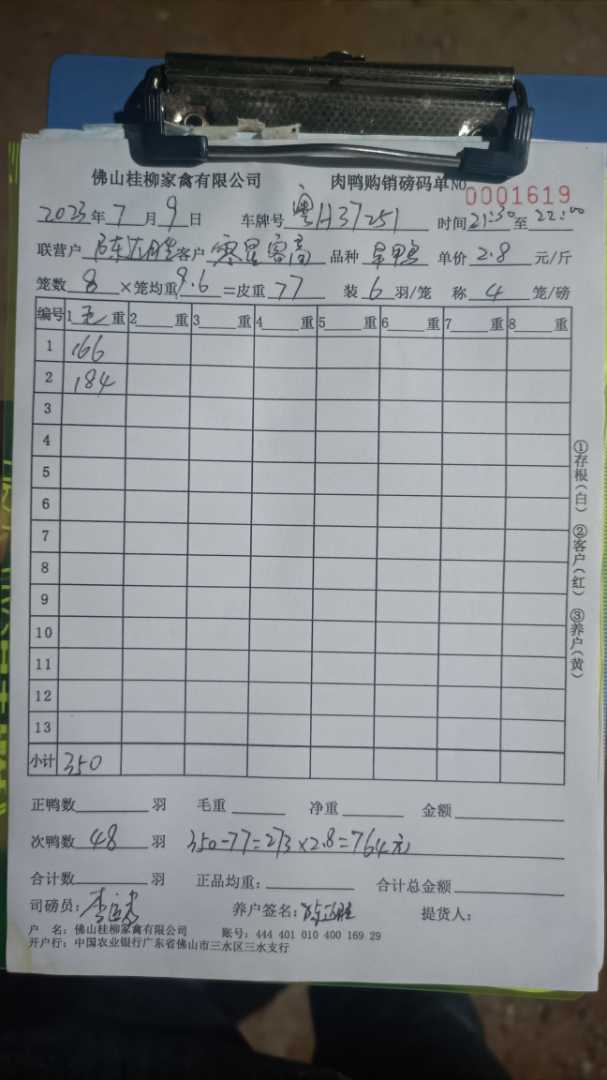 佛山桂柳家禽有限公司 肉鸭购销磅码单 No 0001619
2023年7月9日 车牌号 粤H37251 时间 21:30至22:00
联营户 客户 零星客高 品种 单价 2.8 元/斤
笼数 8 ×笼均重 9.6 =皮重 77 装 6 羽/笼 称 4 笼/磅
编号 1 毛 重 2 重 3 重 4 重 5 重 6 重 7 重 8 重
1 166
2 184
3
4
5
6
7
8
9
10
11
12
13
小计 350
①存根(白) ②客户(红) ③养户(黄)
正鸭数 羽 毛重 净重 金额
次鸭数 48 羽 350-77=273×2.8=764元
合计数 羽 正品均重: 合计总金额
司磅员: 养户签名: 提货人:
户 名: 佛山桂柳家禽有限公司 账号: 444 401 010 400 169 29
开户行: 中国农业银行广东省佛山市三水区三水支行